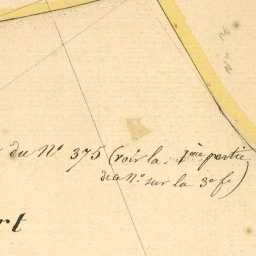 du N° 375 (voir la 1ère partie
du N° sur la 3e fe)
rt